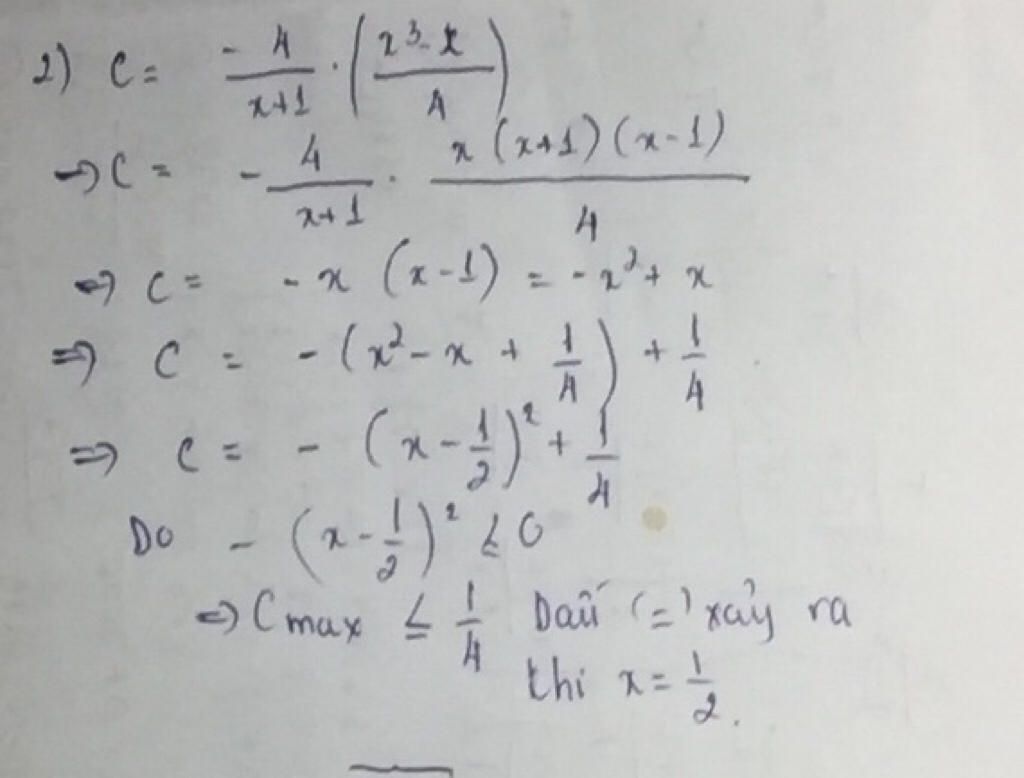 2) C = - 4/(x+1) . ((x³ - x)/4)
→ C = - 4/(x+1) . x(x+1)(x-1)/4
⇒ C = - x (x-1) = - x² + x
⇒ C = - (x² - x + 1/4) + 1/4
⇒ C = - (x - 1/2)² + 1/4
Do - (x - 1/2)² ≤ 0
⇒ C max ≤ 1/4 Dấu (=) xảy ra
thì x = 1/2.